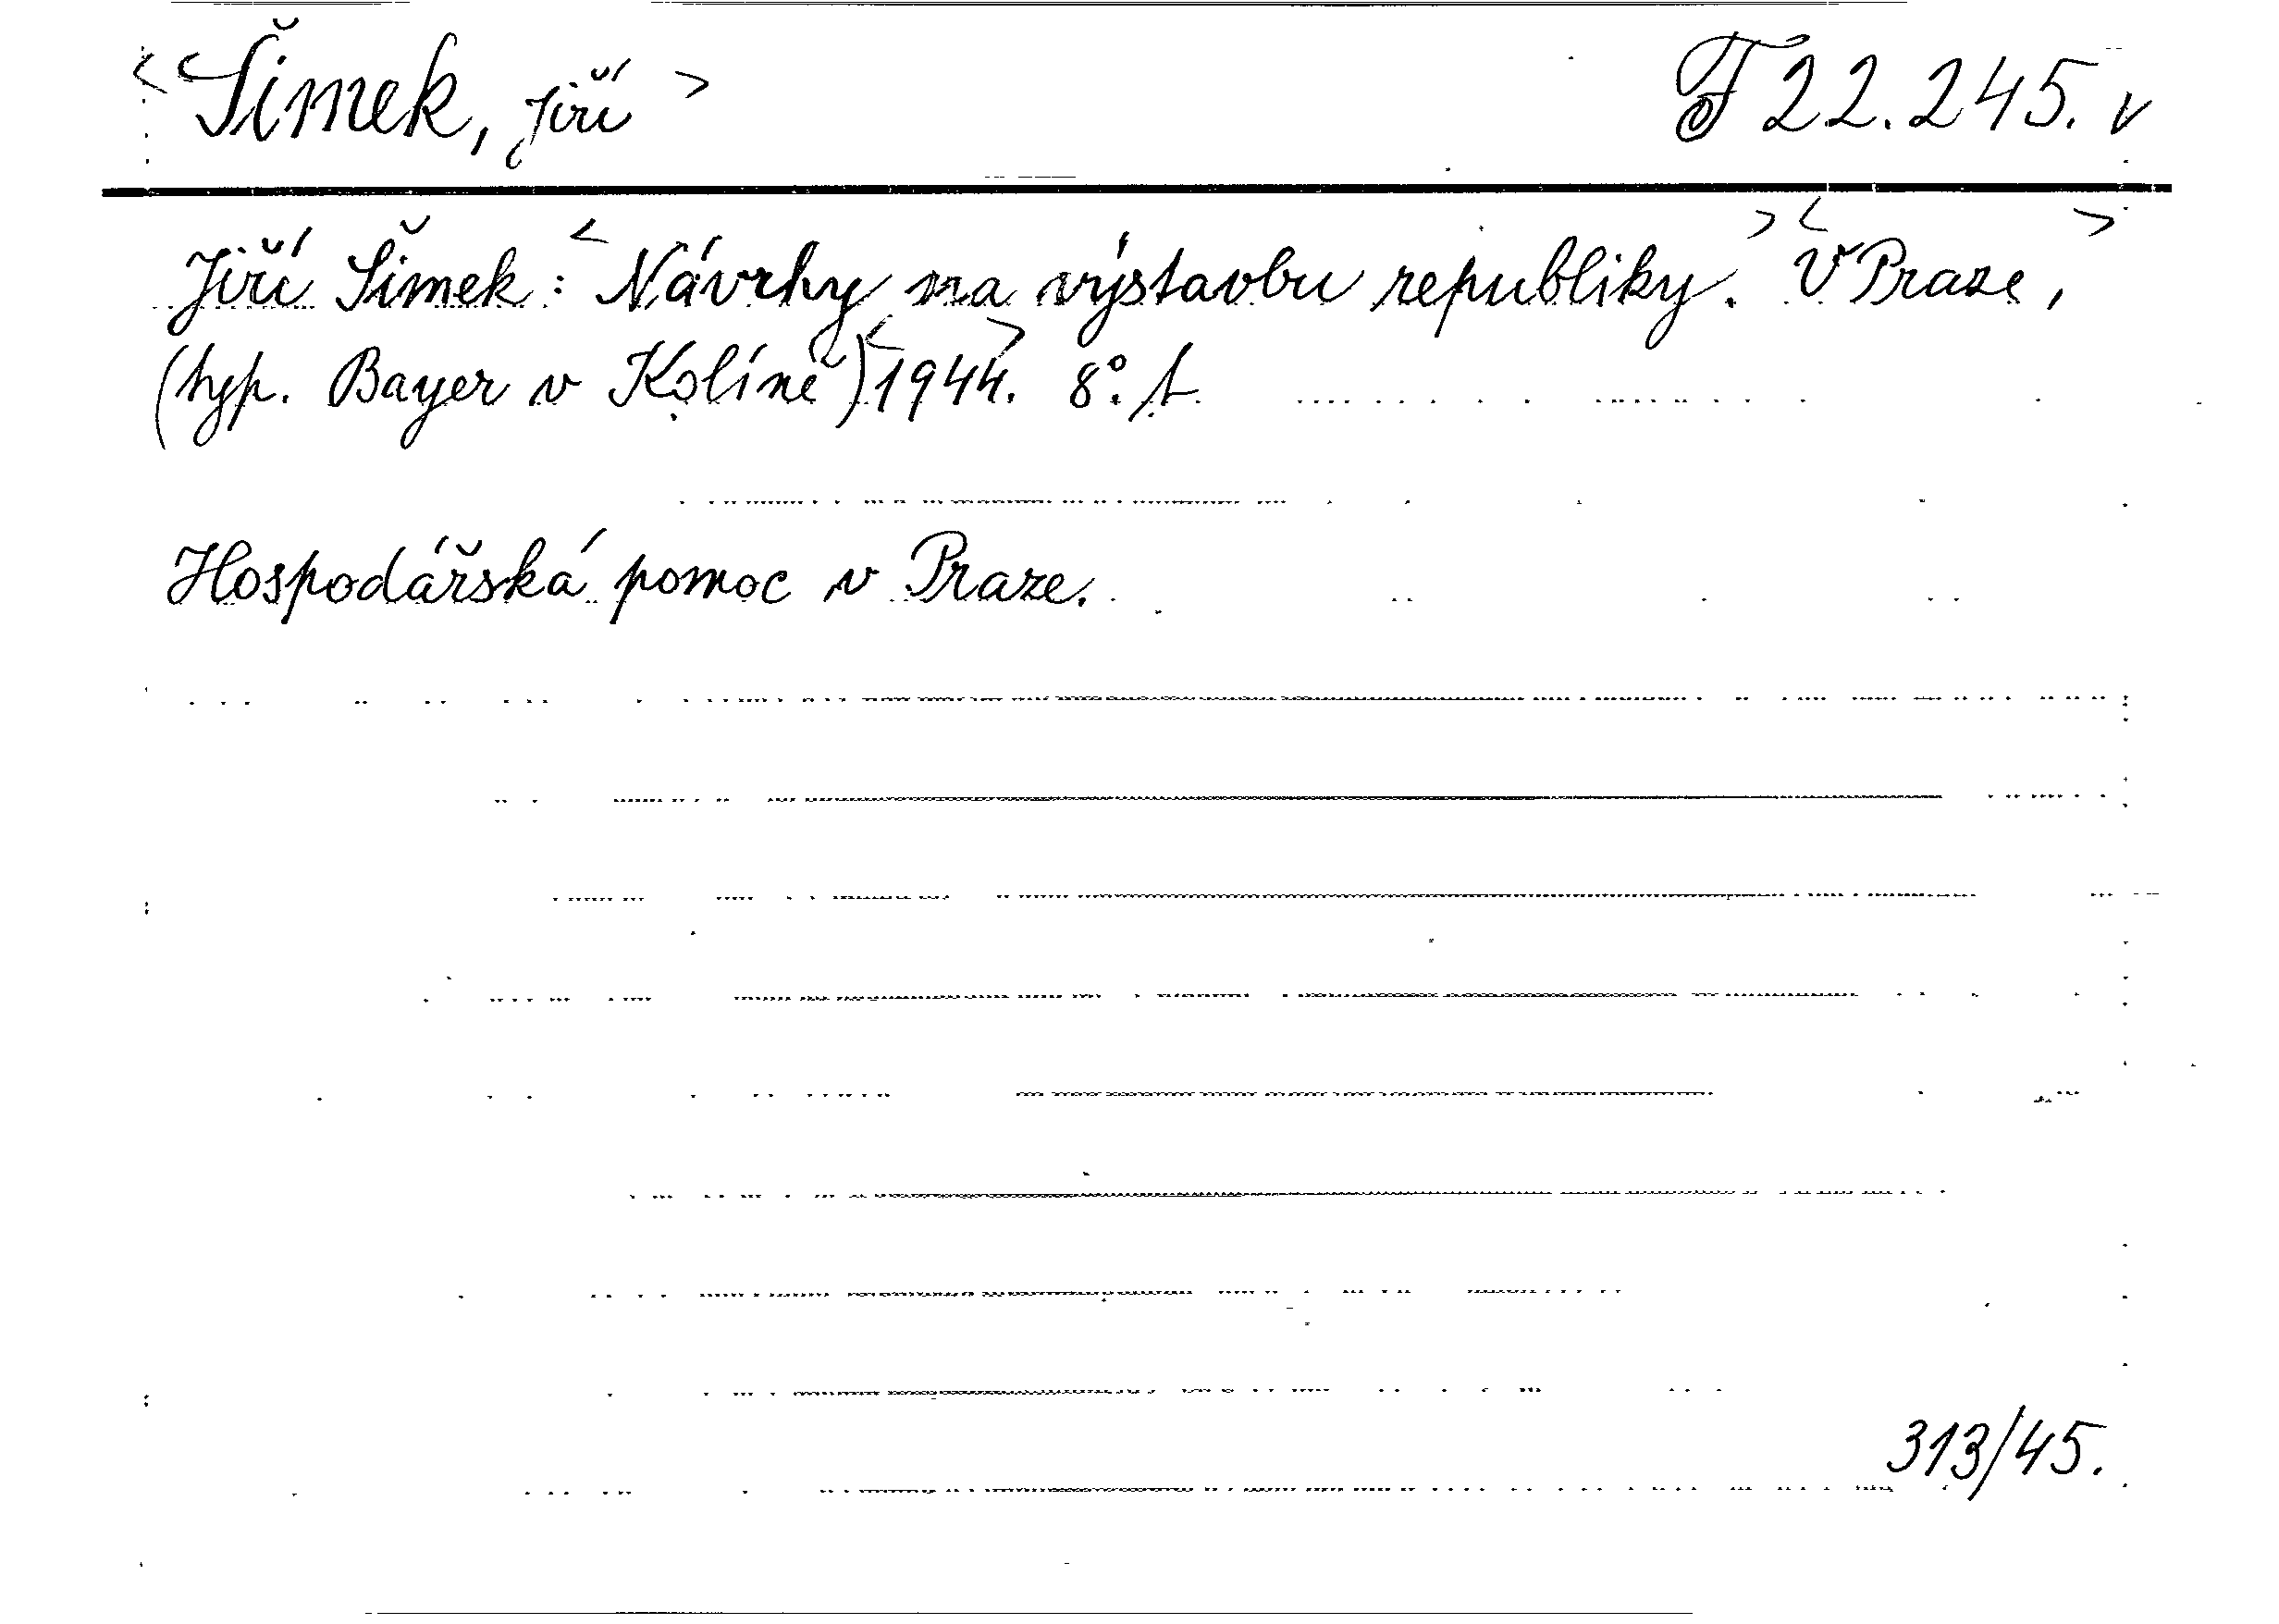 <Šimek, Jiří> F 22.245. v
Jiří Šimek: <Návrhy na výstavbu republiky.> <V Praze,>
(typ. Bayer v Kolíně) <1944>. 8°.
Hospodářská pomoc v Praze.
313/45.